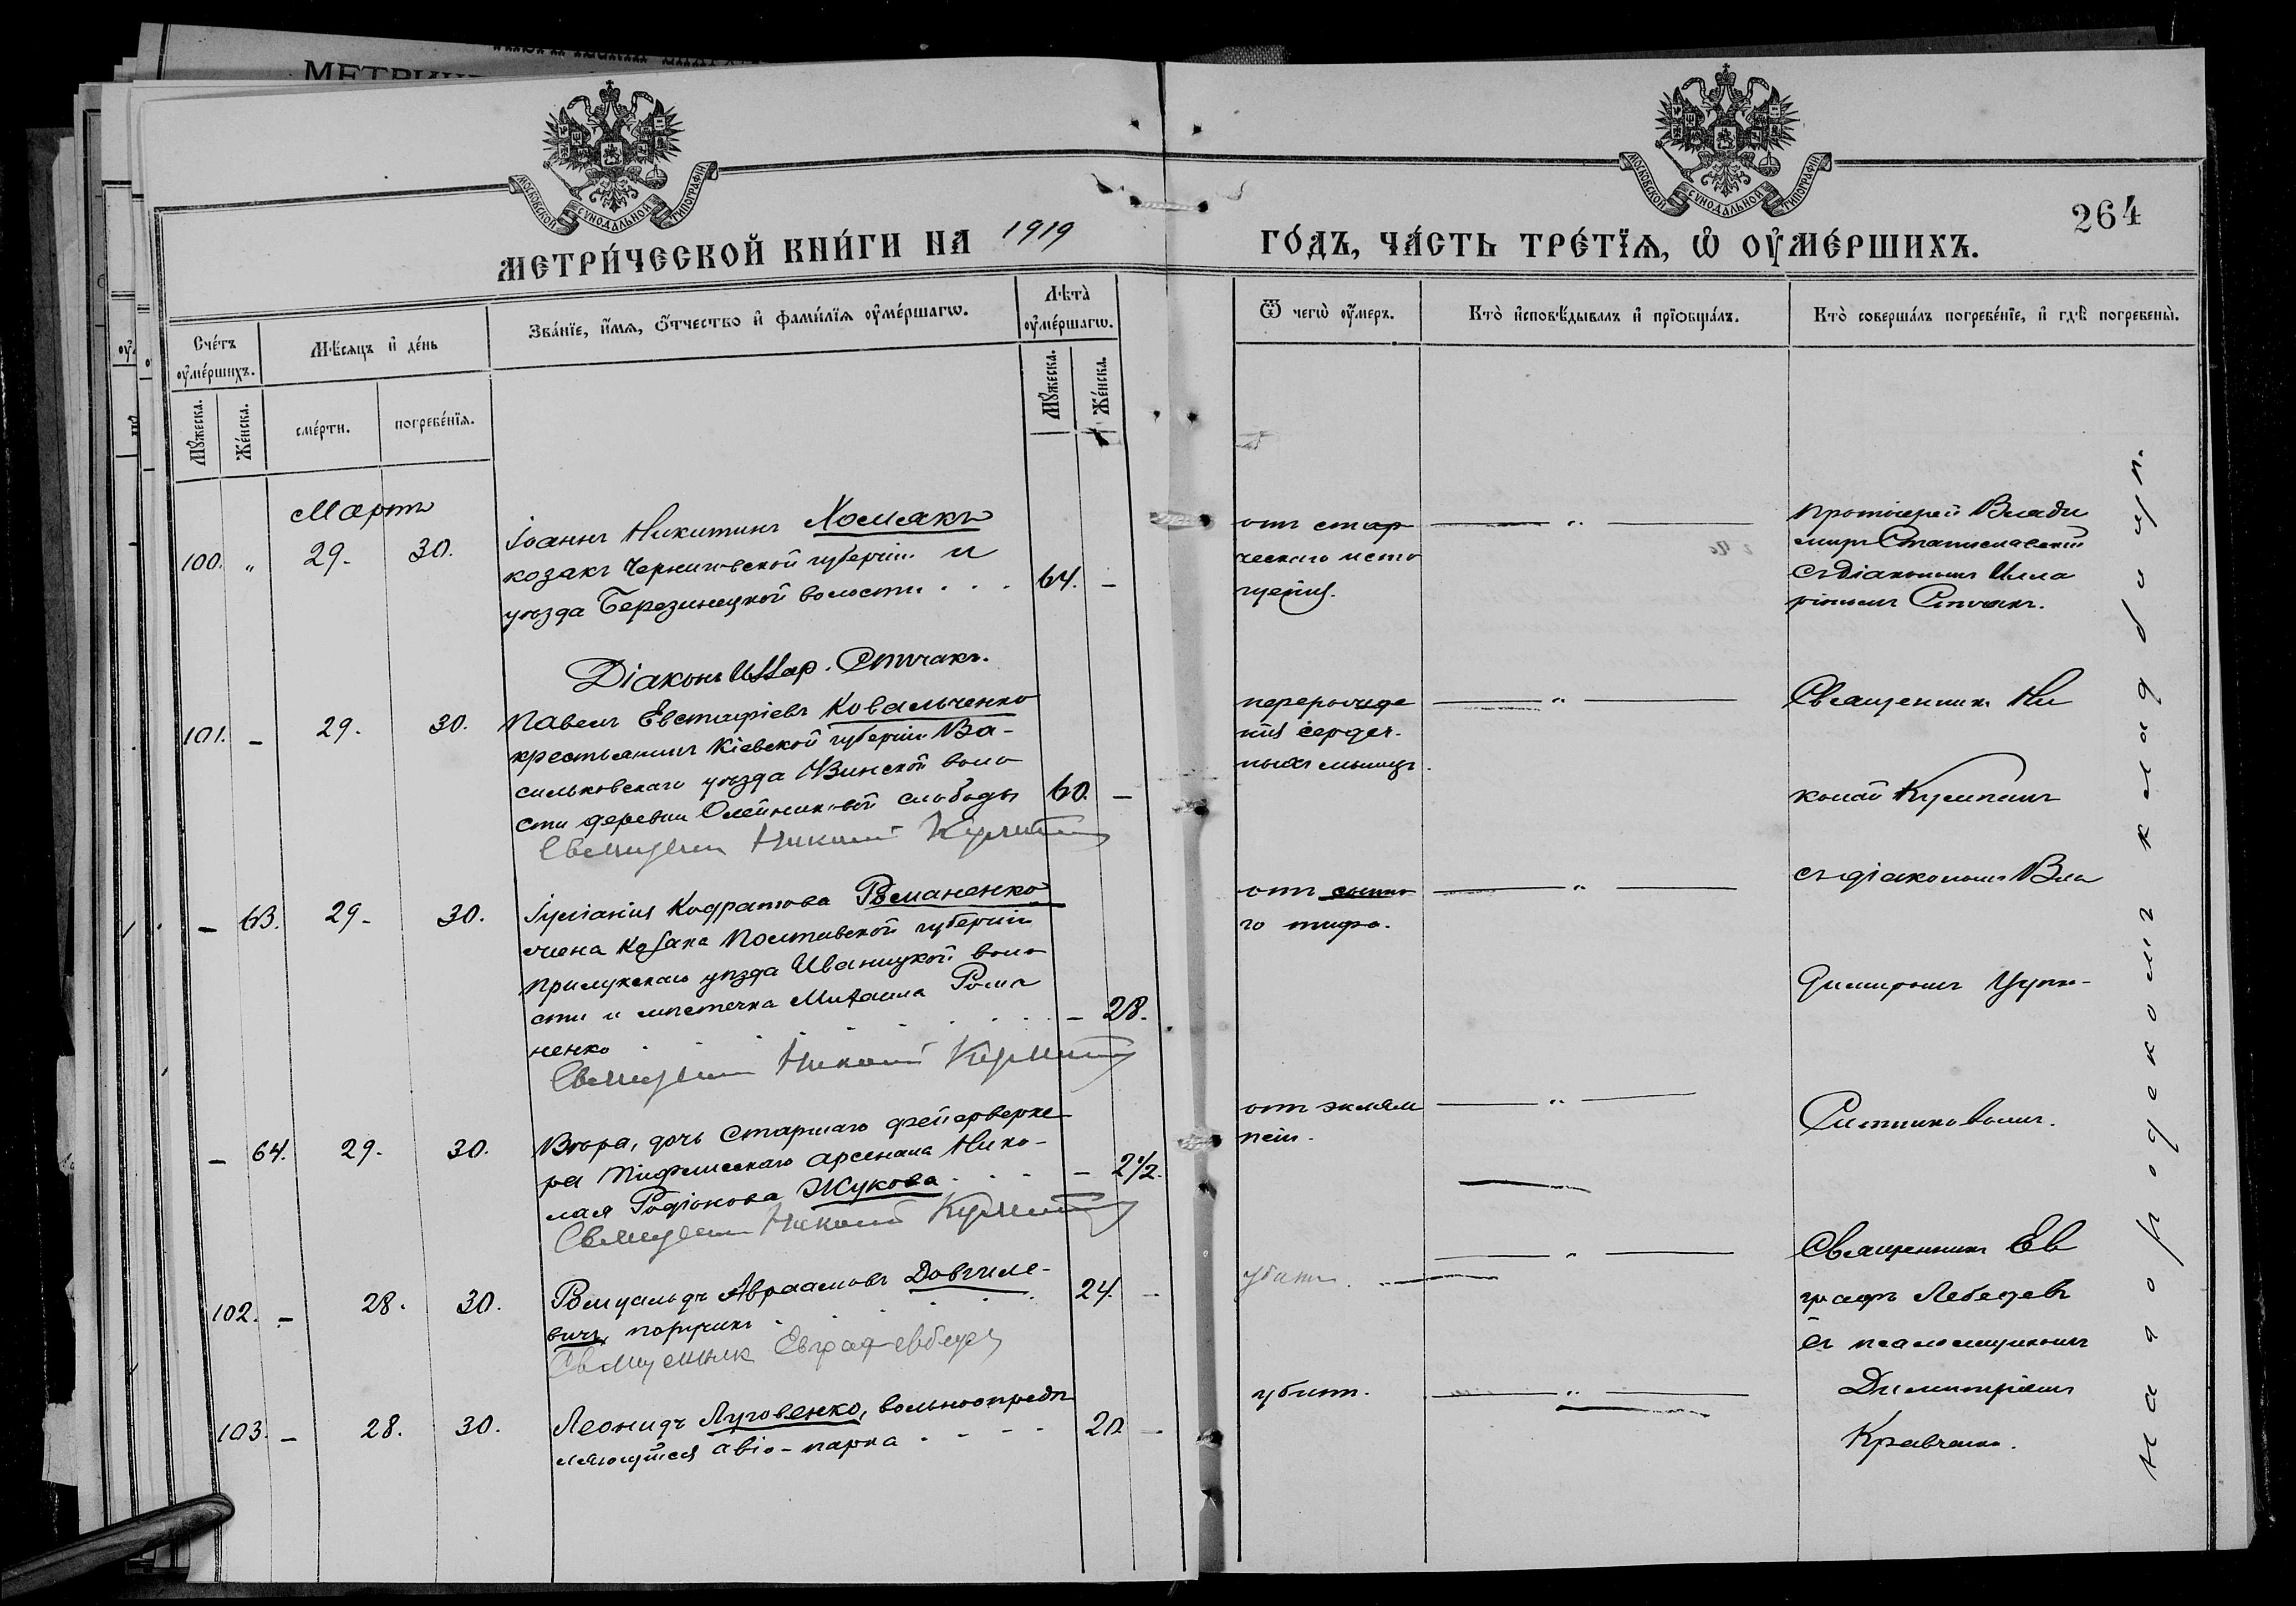 МЕТРИЧ
МОСКОВСКОЙ СУНОДАЛЬНОЙ ТИПОГРАФІИ
МОСКОВСКОЙ СУНОДАЛЬНОЙ ТИПОГРАФІИ
264
МЕТРИ́ЧЕСКОЙ КНИ́ГИ НА 1919 ГО́ДЪ, ЧА́СТЬ ТРЕ́ТЇѦ, Ѡ҆ ОУ҆МЕ́РШИХЪ.
Сче́тъ оу҆ме́ршихъ.
Мꙋ́жеска.
Же́нска.
Мѣ́сяцъ и҆ де́нь
сме́рти.
погребе́нїѧ.
Зва́нїе, и҆́мѧ, ѻ҆́тчество и҆ фами́лїѧ оу҆ме́ршагѡ.
Лѣ́та̀ оу҆ме́ршагѡ.
Мꙋ́жеска.
Же́нска.
Ѿ чегѡ̀ оу҆́меръ.
Кто̀ и҆сповѣ́дывалъ и҆ прїѡбща́лъ.
Кто̀ соверша́лъ погребе́нїе, и҆ гдѣ̀ погребены̀.
Мартъ
100. „ 29. 30.
Іоаннъ Никитинъ Хомякъ
козакъ Черниговской губерніи и
уѣзда Березинецкой волости . . . 64. —
отъ стар
ческаго исто
щенія.
— „ —
Протоіерей Влади
миръ Станиславскій
съ діакономъ Илла
ріономъ Стичакъ.
Діаконъ Иллар. Стичакъ.
101. — 29. 30.
Павелъ Евстафіевъ Ковальченко
крестьянинъ Кіевской губерніи Ва-
сильковскаго уѣзда Винской воло
сти деревни Олейниковой слободы 60. —
Священникъ Николай
перерожде
нія сердеч.
ныхъ мышцъ.
— „ —
Священникъ Ни
колай
съ діакономъ Вла
димиромъ
Ситниковымъ.
— 63. 29. 30.
Іуліанія Кодратова Романенко
жена козака Полтавской губерніи
Прилукскаго уѣзда Иваницкой воло
сти и мѣстечка Михаила Рома
ненко . . . . — 28.
Священникъ Николай
отъ сыпно
го тифа.
— „ —
— 64. 29. 30.
Вѣра, дочь старшаго фейерверке
ра Тифлисскаго арсенала Нико-
лая Родіонова Жукова . . . — 2½.
Священникъ Николай
отъ эклям
псіи.
— „ —
102. — 28. 30.
Ромуальдъ Авраамовъ Довгиле-
вичъ, поручикъ . . . 24. —
Священник Евграф Лебедев
убитъ.
— „ —
Священникъ Ев
графъ Лебедевъ
съ псаломщикомъ
Димитріемъ
Кравченко.
103. — 28. 30.
Леонидъ Луговенко, вольноопредѣ
ляющійся авіо-парка . . . . 20. —
убитъ.
— „ —
На городскомъ кладбищѣ.